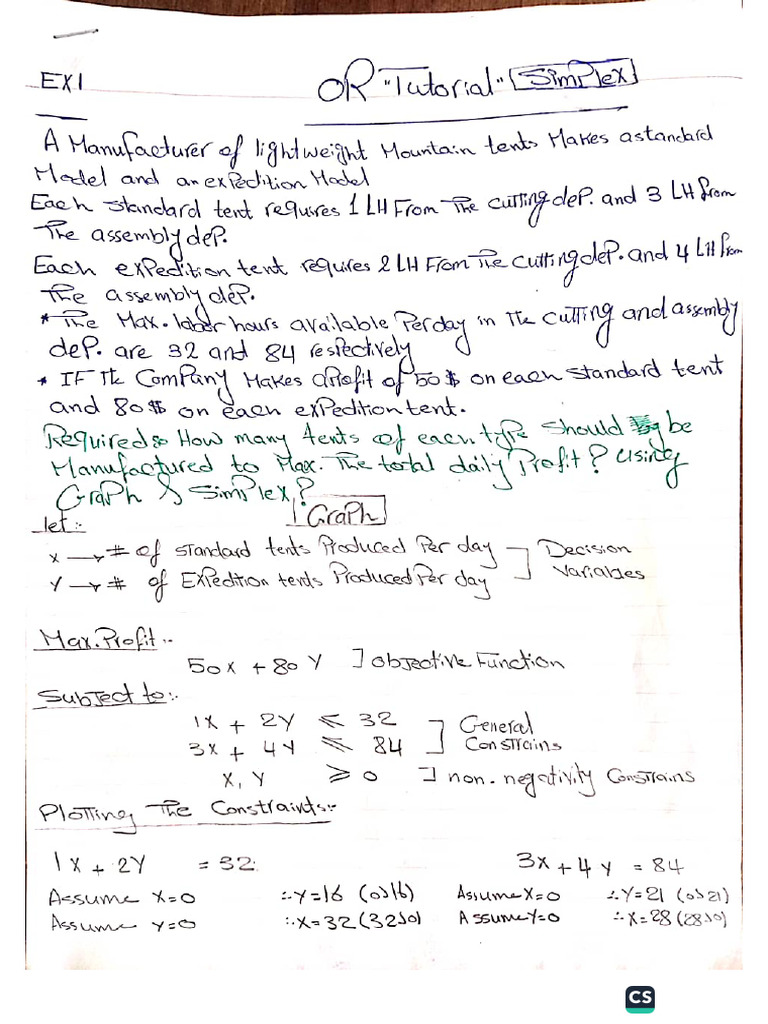 EX1
OR "Tutorial" Simplex
A Manufacturer of lightweight Mountain tents Makes a standard
Model and an expedition Model
Each standard tent requires 1 LH From The cutting deP. and 3 LH from
The assembly deP.
Each expedition tent requires 2 LH From The cutting deP. and 4 LH from
The assembly deP.
* The Max. labor hours available Per day in The cutting and assembly
deP. are 32 and 84 respectively
* IF The Company Makes a Profit of 50 $ on each standard tent
and 80 $ on each expedition tent.
Required: How many tents of each type should be
Manufactured to Max. The total daily Profit? using
Graph & Simplex?
Graph
let:-
X → # of standard tents Produced Per day
Y → # of Expedition tents Produced Per day
Decision
Variables
Max. Profit:-
50X + 80Y ] objective Function
Subject to:-
1X + 2Y ≤ 32
3X + 4Y ≤ 84
General
Constrains
X, Y ≥ 0 ] non-negativity Constrains
Plotting The Constraints:-
1X + 2Y = 32
3X + 4Y = 84
Assume X=0 ∴Y=16 (0,16)
Assume X=0 ∴Y=21 (0,21)
Assume Y=0 ∴X=32 (32,0)
Assume Y=0 ∴X=28 (28,0)
CS